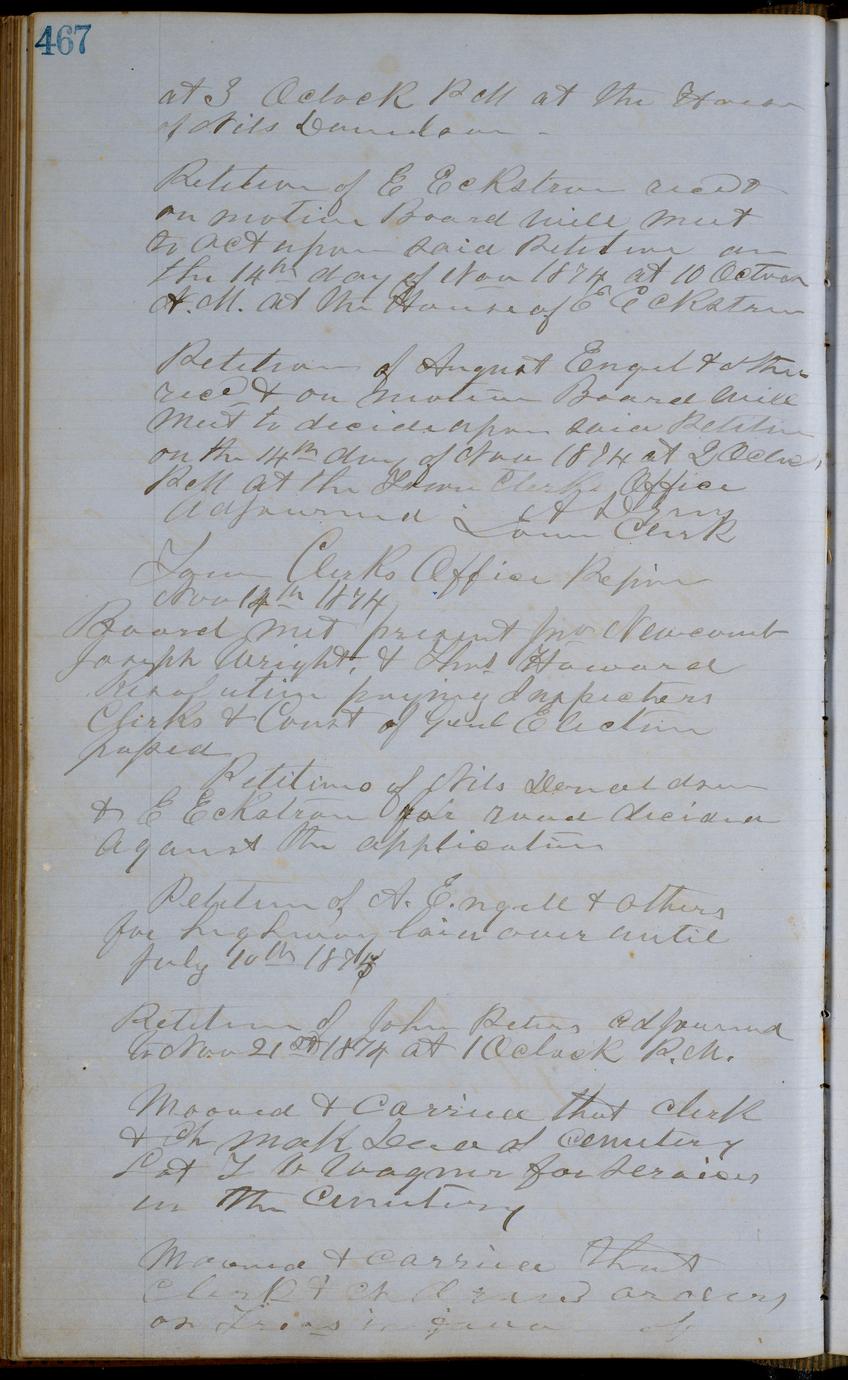 467
at 3 Oclock P M at the House
of Nils Donaldson -
Petition of E Eckstrom recd &
on motion Board will meet
to act upon said Petition on
the 14th day of Nov 1874 at 10 Oclock
A.M. at the House of E Eckstrom
Petition of August Engel & others
recd & on motion Board will
meet to decide upon said Petition
on the 14th day of Nov 1874 at 2 Oclo
P M at the Town Clerks Office
Adjourned A D
Town Clerk
Town Clerks Office
Nov 14th 1874
Board met present Jno Newcomb
Joseph Wright, & Thos Howard
Resolution paying Inspecters
Clerks & Const of Genl Election
passed
Petitions of Nils Donaldson
& E Eckstrom for road decided
against the application
Petition of A. Engell & others
for highway laid over until
July 10th 1875
Petition of John Peters adjourned
to Nov 21st 1874 at 1 Oclock P.M.
Mooved & Carried that clerk
& Ch make Deed of Cemetery
Lot T Wagner for Services
in the Cemetery
Mooved & carried that
Clerk & Ch orders
on in favor of